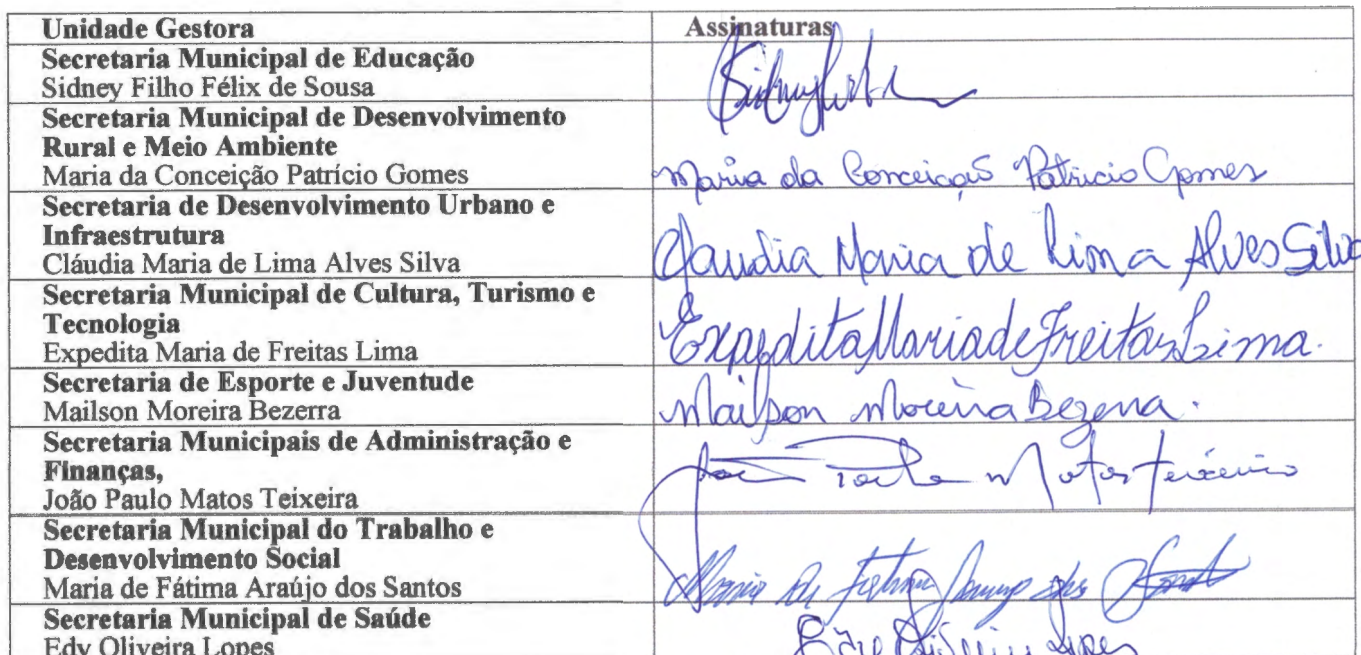 Unidade Gestora
Assinaturas
Secretaria Municipal de Educação
Sidney Filho Félix de Sousa
Secretaria Municipal de Desenvolvimento
Rural e Meio Ambiente
Maria da Conceição Patrício Gomes
Maria da Conceição Patricio Gomes
Secretaria de Desenvolvimento Urbano e
Infraestrutura
Cláudia Maria de Lima Alves Silva
Claudia Maria de Lima Alves Silva
Secretaria Municipal de Cultura, Turismo e
Tecnologia
Expedita Maria de Freitas Lima
Expedita Maria de Freitas Lima.
Secretaria de Esporte e Juventude
Mailson Moreira Bezerra
Mailson Moreira Bezerra.
Secretaria Municipais de Administração e
Finanças,
João Paulo Matos Teixeira
João Paulo Matos Teixeira
Secretaria Municipal do Trabalho e
Desenvolvimento Social
Maria de Fátima Araújo dos Santos
Secretaria Municipal de Saúde
Edy Oliveira Lopes